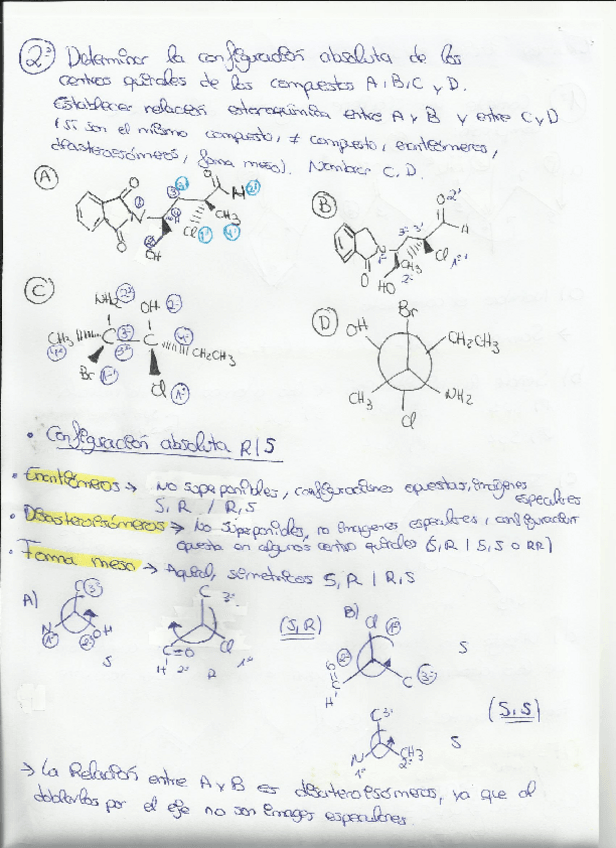 2º Determinar la configuración absoluta de los
centros quirales de los compuestos A, B, C y D.
Establecer relación esteroquímica entre A y B y entre C y D
(si son el mismo compuesto, ≠ compuesto, enantiómeros,
diasteroisómeros, forma meso). Nombrar C, D.
A
O
O
N
1
2
3
H
OH
O
H
2º
3º
CH3
4º
Cl
1º
B
O
2º
H
N
1º
3º
3º
CH3
Cl
1º
HO
2º
O
C
NH2 2º
OH 2º
CH3
4º
C
3º
C
3º
4º
CH2CH3
Br 1º
Cl 1º
D
Br
OH
CH2CH3
CH3
NH2
Cl
• Configuración absoluta R/S
• Enantiómeros → No superponibles, configuraciones opuestas, imágenes
especulares
S, R / R, S
• Diasteroisómeros → No superponibles, no imagenes especulares, configuración
opuesta en algunos centro quirales (S, R / S, S o RR)
• Forma meso → Aquiral, simetricos S, R / R, S
A)
C 3º
N
1º
OH
2º
S
C 3º
C=O
H 2º
Cl
1º
R
(S, R)
B)
Cl 1º
O
C
H
2º
C 3º
S
C 3º
N
1º
CH3
2º
S
(S, S)
→ La Relación entre A y B es diasteroisómeros, ya que al
doblarlos por el eje no son images especulares.